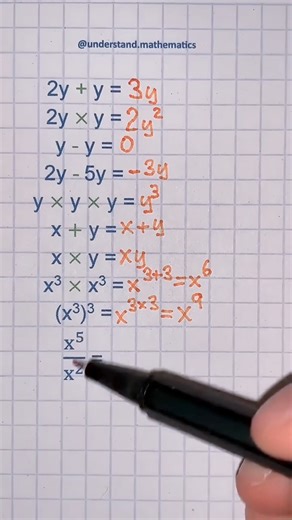 @understand.mathematics
2y + y = 3y
2y × y = 2y²
y - y = 0
2y - 5y = -3y
y × y × y = y³
x + y = x+y
x × y = xy
x³ × x³ = x³⁺³ = x⁶
(x³)³ = x³ˣ³ = x⁹
x⁵
x² =